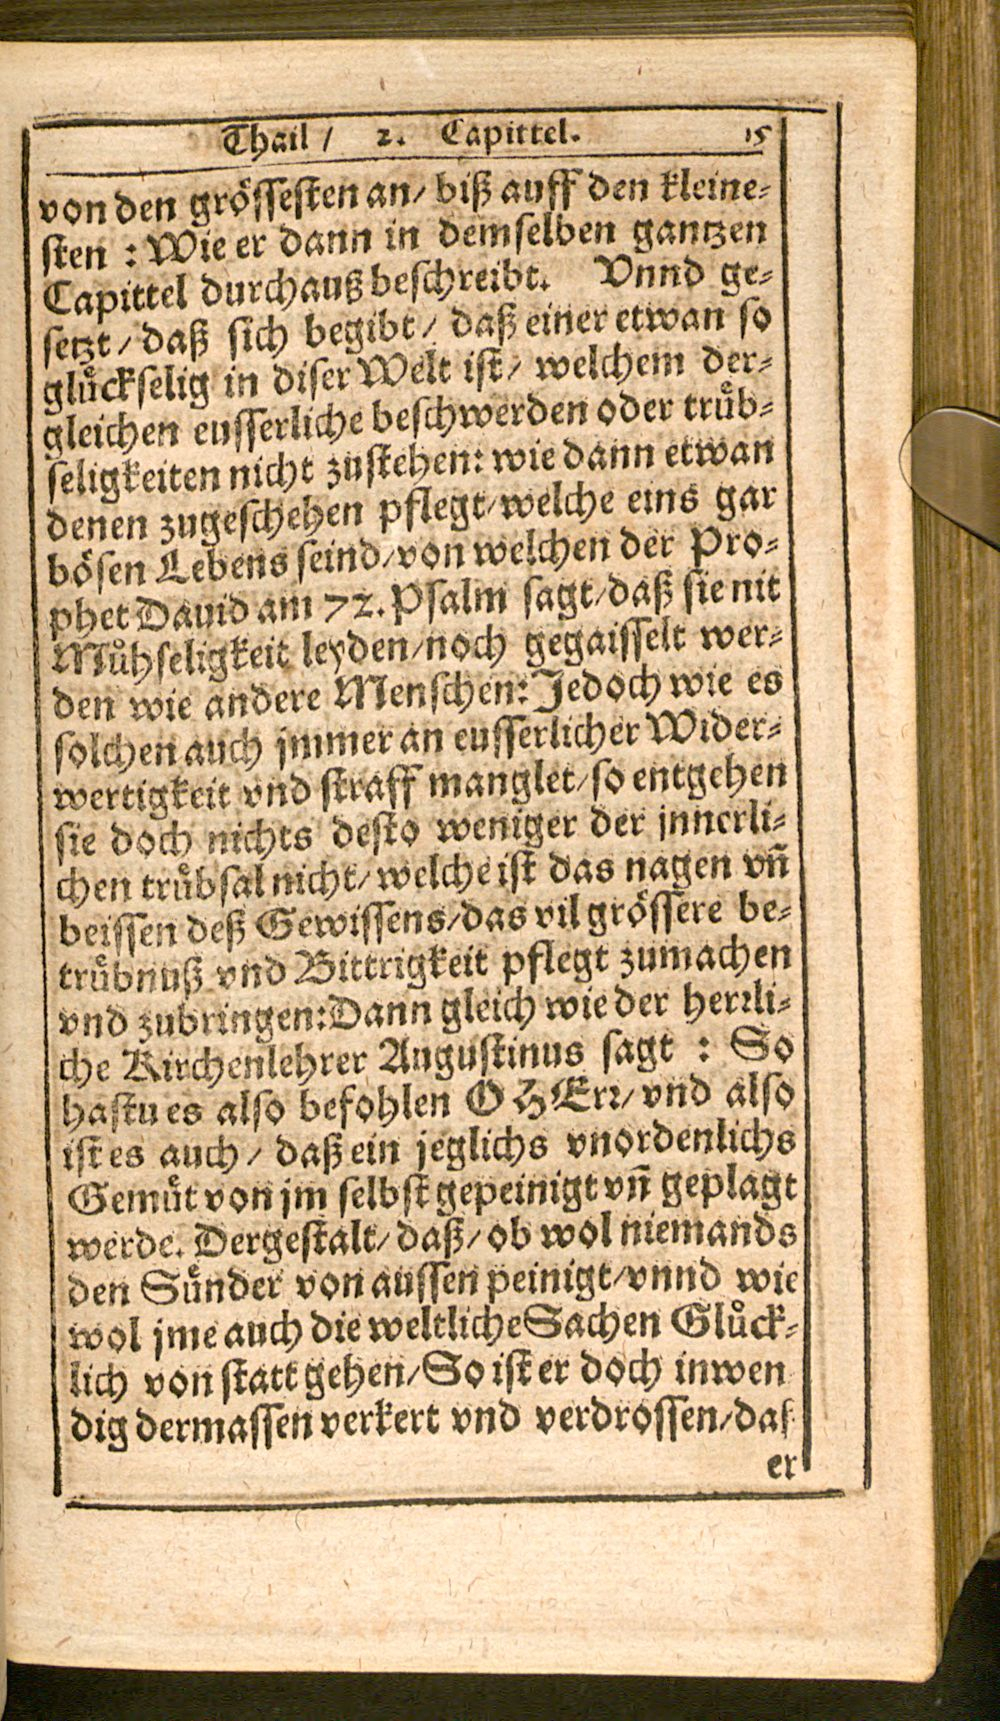 Thail / 2. Capittel. 15
von den grössesten an/ biß auff den kleine-
sten : Wie er dann in demselben gantzen
Capittel durchauß beschreibt. Vnnd ge-
setzt / daß sich begibt / daß einer etwan so
glückselig in diser Welt ist / welchem der-
gleichen eusserliche beschwerden oder trüb-
seligkeiten nicht zustehen: wie dann etwan
denen zugeschehen pflegt/welche eins gar
bösen Lebens seind/von welchen der Pro-
phet Dauid am 72. Psalm sagt/daß sie nit
Mühseligkeit leyden/noch gegaisselt wer-
den wie andere Menschen: Jedoch wie es
solchen auch jmmer an eusserlicher Wider-
wertigkeit vnd straff manglet/so entgehen
sie doch nichts desto weniger der jnnerli-
chen trübsal nicht/welche ist das nagen vñ
beissen deß Gewissens/das vil grössere be-
trübnuß vnd Bittrigkeit pflegt zumachen
vnd zubringen: Dann gleich wie der herrli-
che Kirchenlehrer Augustinus sagt : So
hastu es also befohlen O HErr/ vnd also
ist es auch / daß ein jeglichs vnordenlichs
Gemüt von jm selbst gepeinigt vñ geplagt
werde. Dergestalt/daß/ob wol niemands
den Sünder von aussen peinigt/vnnd wie
wol jme auch die weltliche Sachen Glück-
lich von statt gehen/So ist er doch inwen
dig dermassen verkert vnd verdrossen/das
er